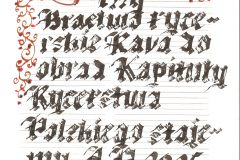 my
Bractwa ryce-
rskie Kawa do
obrad Kapituły
Rycerstwa
Polskiego staje-
my A.D.